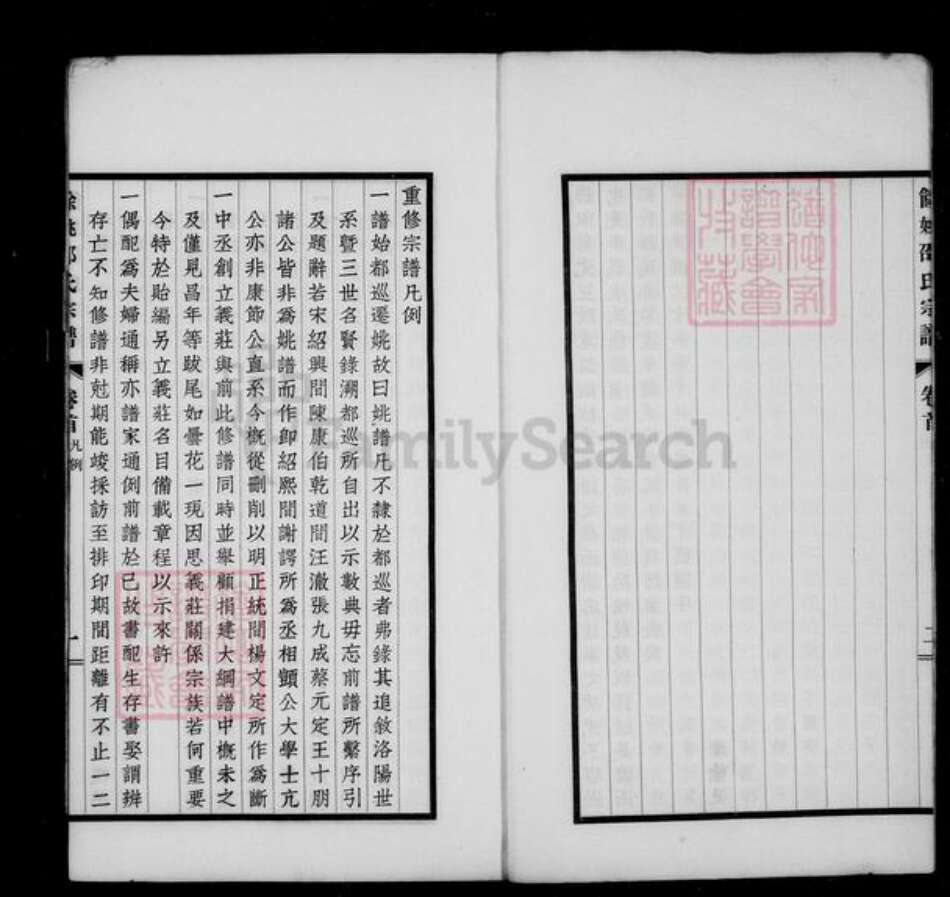 餘姚邵氏宗譜
卷首
二
重修宗譜凡例
一譜始都巡遷姚故曰姚譜凡不隸於都巡者弗錄其追敘洛陽世
系暨三世名賢錄溯都巡所自出以示數典毋忘前譜所繫序引
及題辭若宋紹興間陳康伯乾道間汪澈張九成蔡元定王十朋
諸公皆非為姚譜而作卽紹熙間謝諤所為丞相顗公大學士亢
公亦非康節公直系今概從刪削以明正統間楊文定所作為斷
一中丞創立義莊與前此修譜同時並舉顧捐建大綱譜中概未之
及僅見昌年等跋尾如曇花一現因思義莊關係宗族若何重要
今特於貽編另立義莊名目備載章程以示來許
一偶配為夫婦通稱亦譜家通例前譜於已故書配生存書娶謂辨
存亡不知修譜非尅期能竣採訪至排印期間距離有不止一二
餘姚邵氏宗譜
卷首
凡例
一
FamilySearch